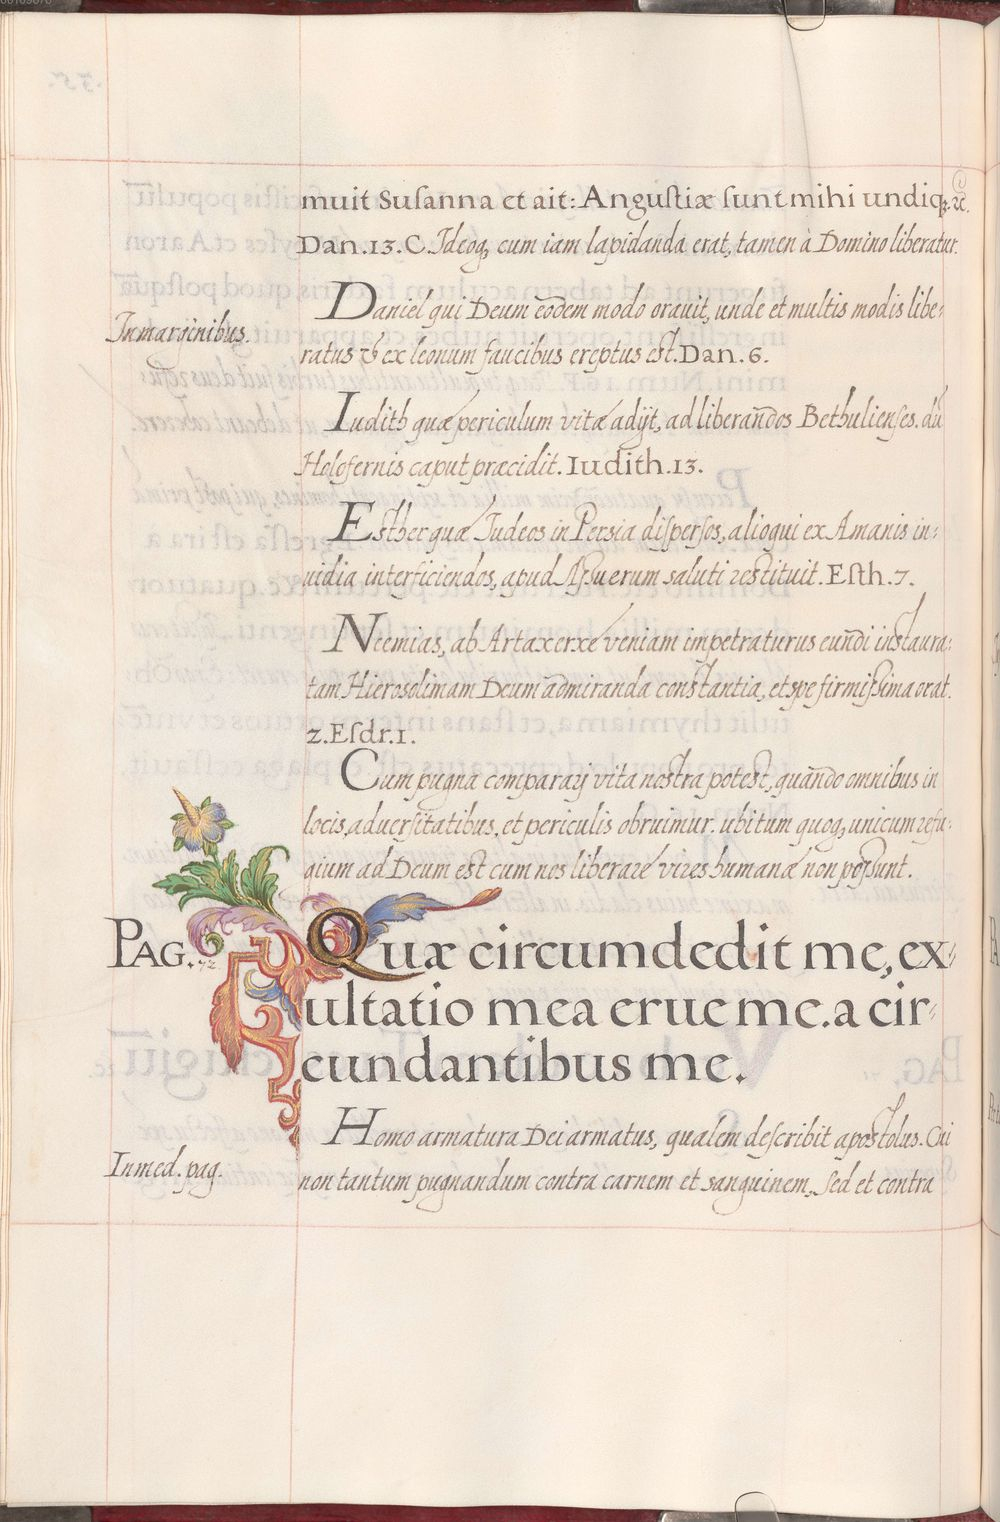 muit Suſanna et ait: Anguſtiæ ſunt mihi undiq;. ꝛc.
Dan. 13. C. Ideoq; cum iam lapidanda erat, tamen à Domino liberatur.
Daniel qui Deum eōdem modo orauit, unde et multis modis libe-
In marginibus.
ratus & ex leonum faucibus ereptus est. Dan. 6.
Iudith quæ periculum vitæ adijt, ad liberandos Bethulienſes. dū
Holofernis caput præcidit. Iudith. 13.
Esther quæ Iudeos in Persia diſperſos, alioqui ex Amanis in-
uidia interficiendos, apud Aſsuerum saluti restituit. Eſth. 7.
Neemias, ab Artaxerxe veniam impetraturus eundi instaura-
tam Hierosolimam Deum admiranda constantia, et spe firmiſsima orat.
2. Eſdr. 1.
Cum pugna comparari vita nostra potest, quando omnibus in
locis, aduerſitatibus, et periculis obruimur. ubi tum quoq; unicum refu-
gium ad Deum est cum nos liberare vires humanæ non poſsunt.
PAG. 72.
Quæ circumdedit me, ex-
ultatio mea erue me. a cir-
cundantibus me.
Homo armatura Dei armatus, qualem deſcribit apostolus. Cui
In med. pag.
non tantum pugnandum contra carnem et sanguinem, ſed et contra